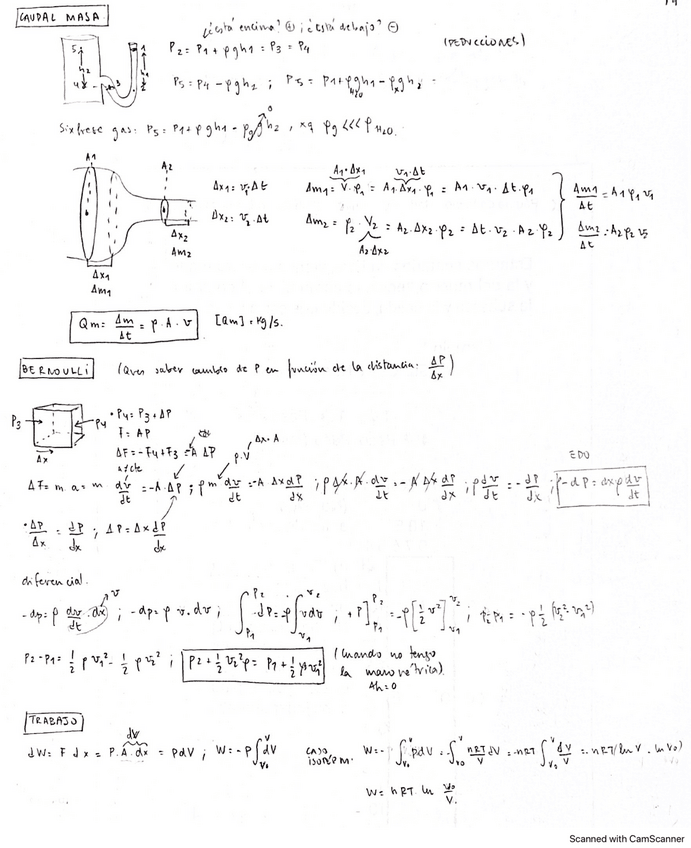 CAUDAL MASA
¿está encima? ⊕ ; ¿está debajo? ⊖
P₂ = P₁ + ρgh₁ = P₃ = P₄
(DEDUCCIONES)
P₅ = P₄ - ρgh₂ ; P₅ = P₁ + ρ_H₂O gh₁ - ρₓgh₂
Si x fuese gas: P₅ = P₁ + ρgh₁ - ρ_g gh₂ → 0, xq ρg <<< ρ_H₂O.
A1 A2
Δx₁ = v₁·Δt
Δx₂ = v₂·Δt
Δx₁
Δm₁
Δx₂
Δm₂
A₁·Δx₁ v₁·Δt
Δm₁ = V·ρ₁ = A₁·Δx₁·ρ₁ = A₁·v₁·Δt·ρ₁
Δm₂ = ρ₂·V₂ = A₂·Δx₂·ρ₂ = Δt·v₂·A₂·ρ₂
A₂·Δx₂
Δm₁/Δt = A₁ρ₁v₁
Δm₂/Δt = A₂ρ₂v₂
Qm = Δm/Δt = ρ·A·v [Qm] = kg/s.
BERNOULLI (Ques saber cambio de P en función de la distancia: ΔP/Δx)
P₃ P₄ Δx
• P₄ = P₃ + ΔP
F = AP
ΔF = -F₄ + F₃ = -A ΔP
ρ·V Δx·A
EDO
ΔF = m a = m dv/dt = -A·ΔP ; ρ m dv/dt = -A Δx dP/dx ; ρ Δx·A·dv/dt = -A Δx dP/dx ; ρ dv/dt = -dP/dx ; -dP = dx ρ dv/dt
• ΔP/Δx = dP/dx ; ΔP = Δx dP/dx
diferencial.
-dp = ρ dv/dt·dx → v ; -dp = ρ v·dv ; ∫_P₁^P₂ -dP = ρ ∫_v₁^v₂ v dv ; +P]_P₁^P₂ = -ρ[½v²]_v₁^v₂ ; P₂-P₁ = -ρ½(v₂²-v₁²)
P₂-P₁ = ½ρv₁² - ½ρv₂² ; P₂ + ½v₂²ρ = P₁ + ½ρv₁²
(Cuando no tengo
la manométrica)
Δh=0
TRABAJO
dV
dW = F dx = P·A·dx = pdV ; W = -P∫_V₀^V dV
CASO
ISOTERM.
W = -∫_V₀^V pdV = -∫_V₀^V nRT/V dV = -nRT∫_V₀^V dV/V = -nRT(ln V - ln V₀)
W = nRT ln V₀/V.
Scanned with CamScanner